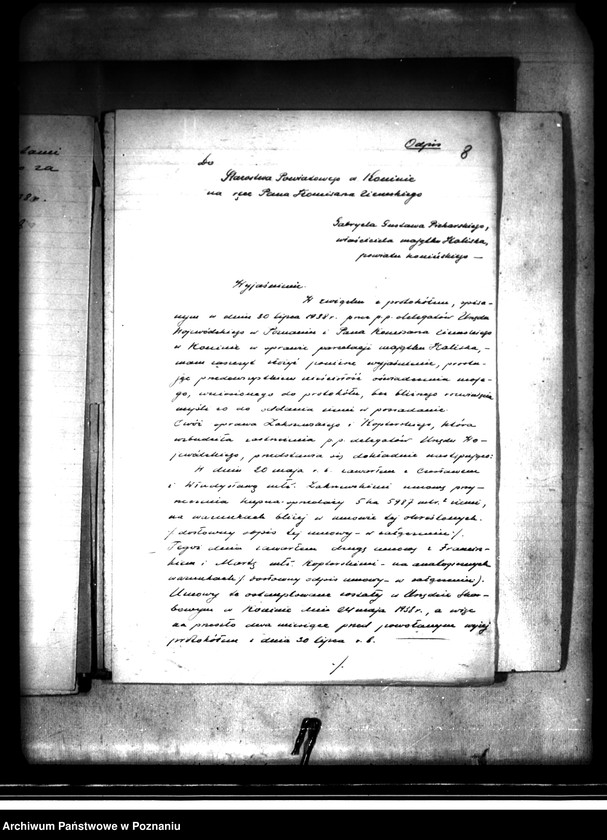 Odpis
8
Do
Starostwa Powiatowego w Koninie
na ręce Pana Komisarza Ziemskiego
Gabryela Gustawa Piekarskiego,
właściciela majątku Kaliska,
powiatu konińskiego —
Wyjaśnienie
W związku z protokółem, spisa-
nym w dniu 30 lipca 1938 r. przez p.p. delegatów Urzędu
Wojewódzkiego w Poznaniu i Pana Komisarza Ziemskiego
w Koninie w sprawie parcelacji majątku Kaliska, -
mam zaszczyt złożyć poniższe wyjaśnienie, prostu-
jąc przedewszystkiem nieścisłość oświadczenia moje-
go, wniesionego do protokółu, bez bliższego
myśli co do oddania ziemi w posiadanie
Otóż sprawa Zakrzewskiego i Koptorskiego, która
wzbudziła zastrzeżenia p.p. delegatów Urzędu Wo-
jewódzkiego, przedstawia się dokładnie następująco:
W dniu 20 maja r.b. zawarłem z Czesławem
i Władysławą młż. Zakrzewskimi umowę przy-
rzeczenia kupna-sprzedaży 5 ha 5987 mtr.² ziemi,
na warunkach bliżej w umowie tej określonych.
/dosłowny odpis tej umowy - w załączeniu/.
Tegoż dnia zawarłem drugą umowę z Francisz-
kiem i Martą młż. Koptorskimi - na analogicznych
warunkach /dosłowny odpis umowy - w załączeniu/.
Umowy te ostemplowane zostały w Urzędzie Skar-
bowym w Koninie dnia 24 maja 1938 r., a więc
na przeszło dwa miesiące przed powołanym wyżej
protokółem z dnia 30 lipca r.b.
./.
Archiwum Państwowe w Poznaniu